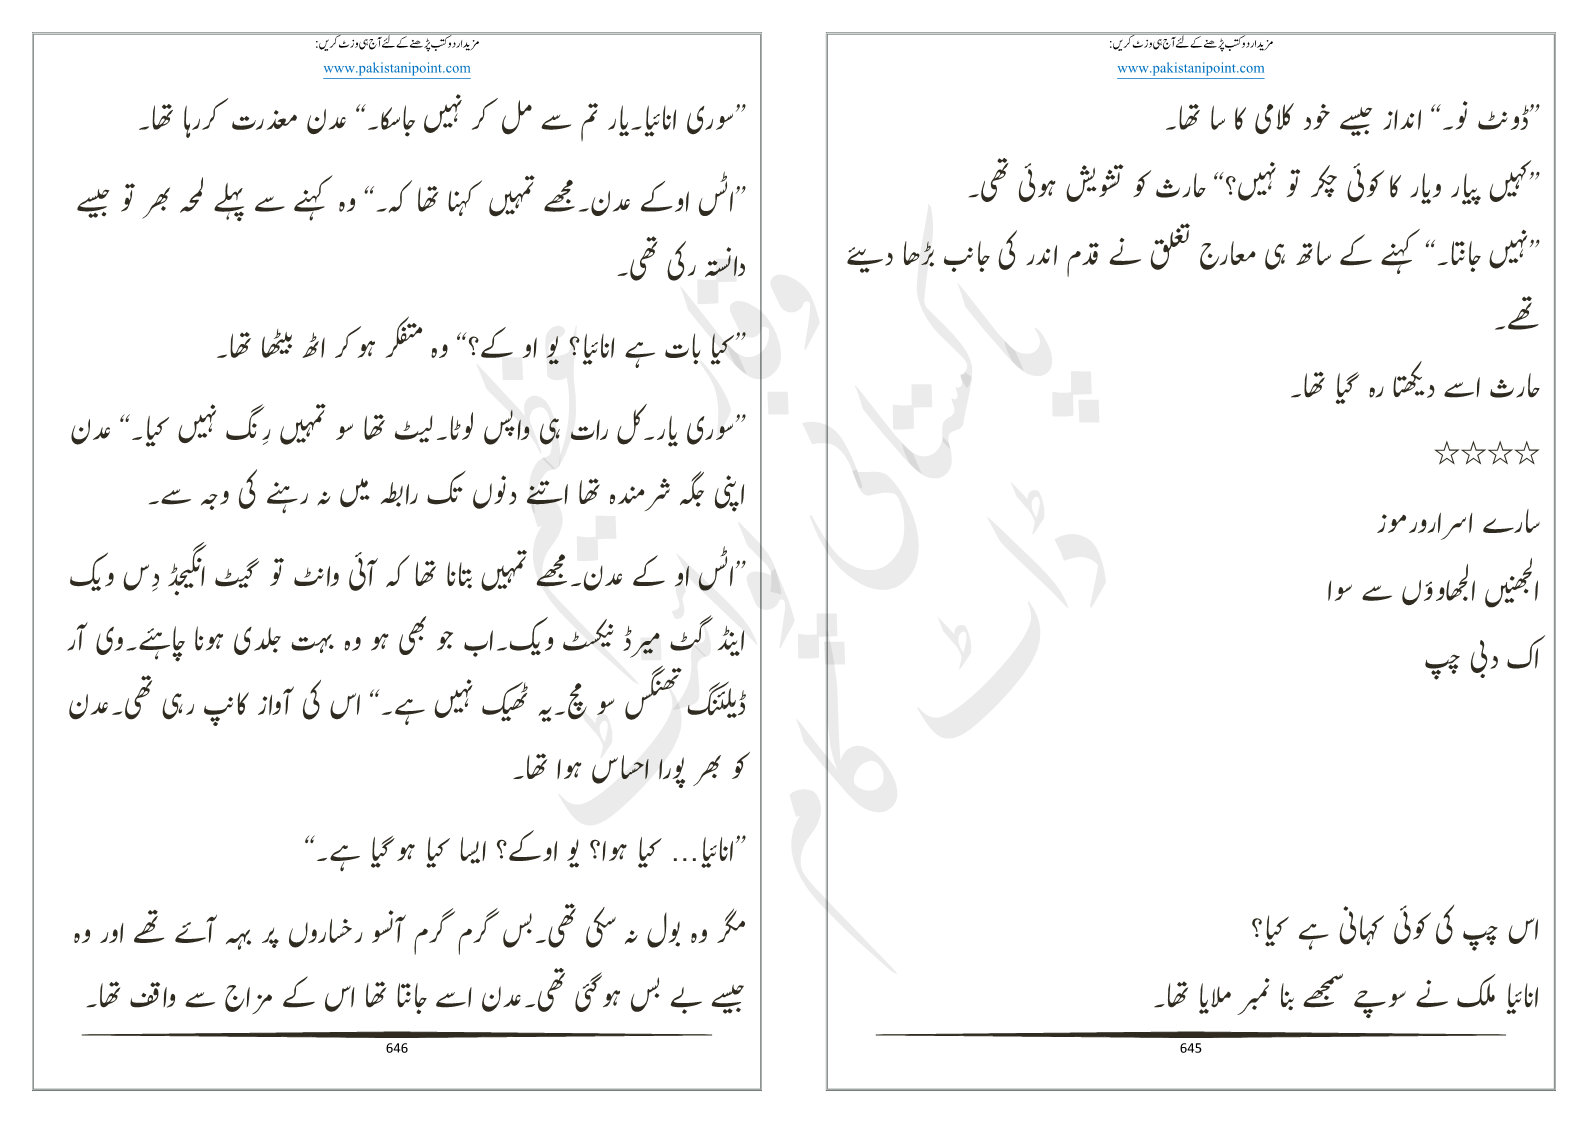 مزید اردو کتب پڑھنے کے لئے آج ہی وزٹ کریں:
www.pakistanipoint.com
”ڈونٹ نو۔“ انداز جیسے خود کلامی کا سا تھا۔
”کہیں پیار ویار کا کوئی چکر تو نہیں؟“ حارث کو تشویش ہوئی تھی۔
”نہیں جانتا۔“ کہنے کے ساتھ ہی معارج تغلق نے قدم اندر کی جانب بڑھا دیئے
تھے۔
حارث اسے دیکھتا رہ گیا تھا۔
☆☆☆☆
سارے اسرارورموز
الجھنیں الجھاوؤں سے سوا
اک دبی چپ
اس چپ کی کوئی کہانی ہے کیا؟
انائیا ملک نے سوچے سمجھے بنا نمبر ملایا تھا۔
645
مزید اردو کتب پڑھنے کے لئے آج ہی وزٹ کریں:
www.pakistanipoint.com
”سوری انائیا۔یار تم سے مل کر نہیں جاسکا۔“ عدن معذرت کررہا تھا۔
”اٹس اوکے عدن۔مجھے تمہیں کہنا تھا کہ۔“ وہ کہنے سے پہلے لمحہ بھر تو جیسے
دانستہ رکی تھی۔
”کیا بات ہے انائیا؟ یو او کے؟“ وہ متفکر ہو کر اٹھ بیٹھا تھا۔
”سوری یار۔کل رات ہی واپس لوٹا۔لیٹ تھا سو تمہیں رِنگ نہیں کیا۔“ عدن
اپنی جگہ شرمندہ تھا اتنے دنوں تک رابطہ میں نہ رہنے کی وجہ سے۔
”اٹس او کے عدن۔مجھے تمہیں بتانا تھا کہ آئی وانٹ تو گیٹ انگیجڈ دِس ویک
اینڈ گٹ میرڈ نیکسٹ ویک۔اب جو بھی ہو وہ بہت جلدی ہونا چاہئے۔وی آر
ڈیلئنگ تھنگس سو مچ۔یہ ٹھیک نہیں ہے۔“ اس کی آواز کانپ رہی تھی۔عدن
کو بھر پورا احساس ہوا تھا۔
”انائیا... کیا ہوا؟ یو اوکے؟ ایسا کیا ہو گیا ہے۔“
مگر وہ بول نہ سکی تھی۔بس گرم گرم آنسو رخساروں پر بہہ آئے تھے اور وہ
جیسے بے بس ہو گئی تھی۔عدن اسے جانتا تھا اس کے مزاج سے واقف تھا۔
646
پاکستانی پوائنٹ ڈاٹ کام
وقار عظیم